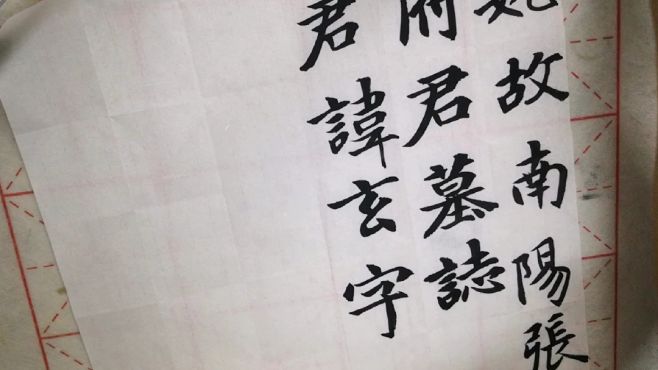 故南陽張
府君墓誌
君諱玄字